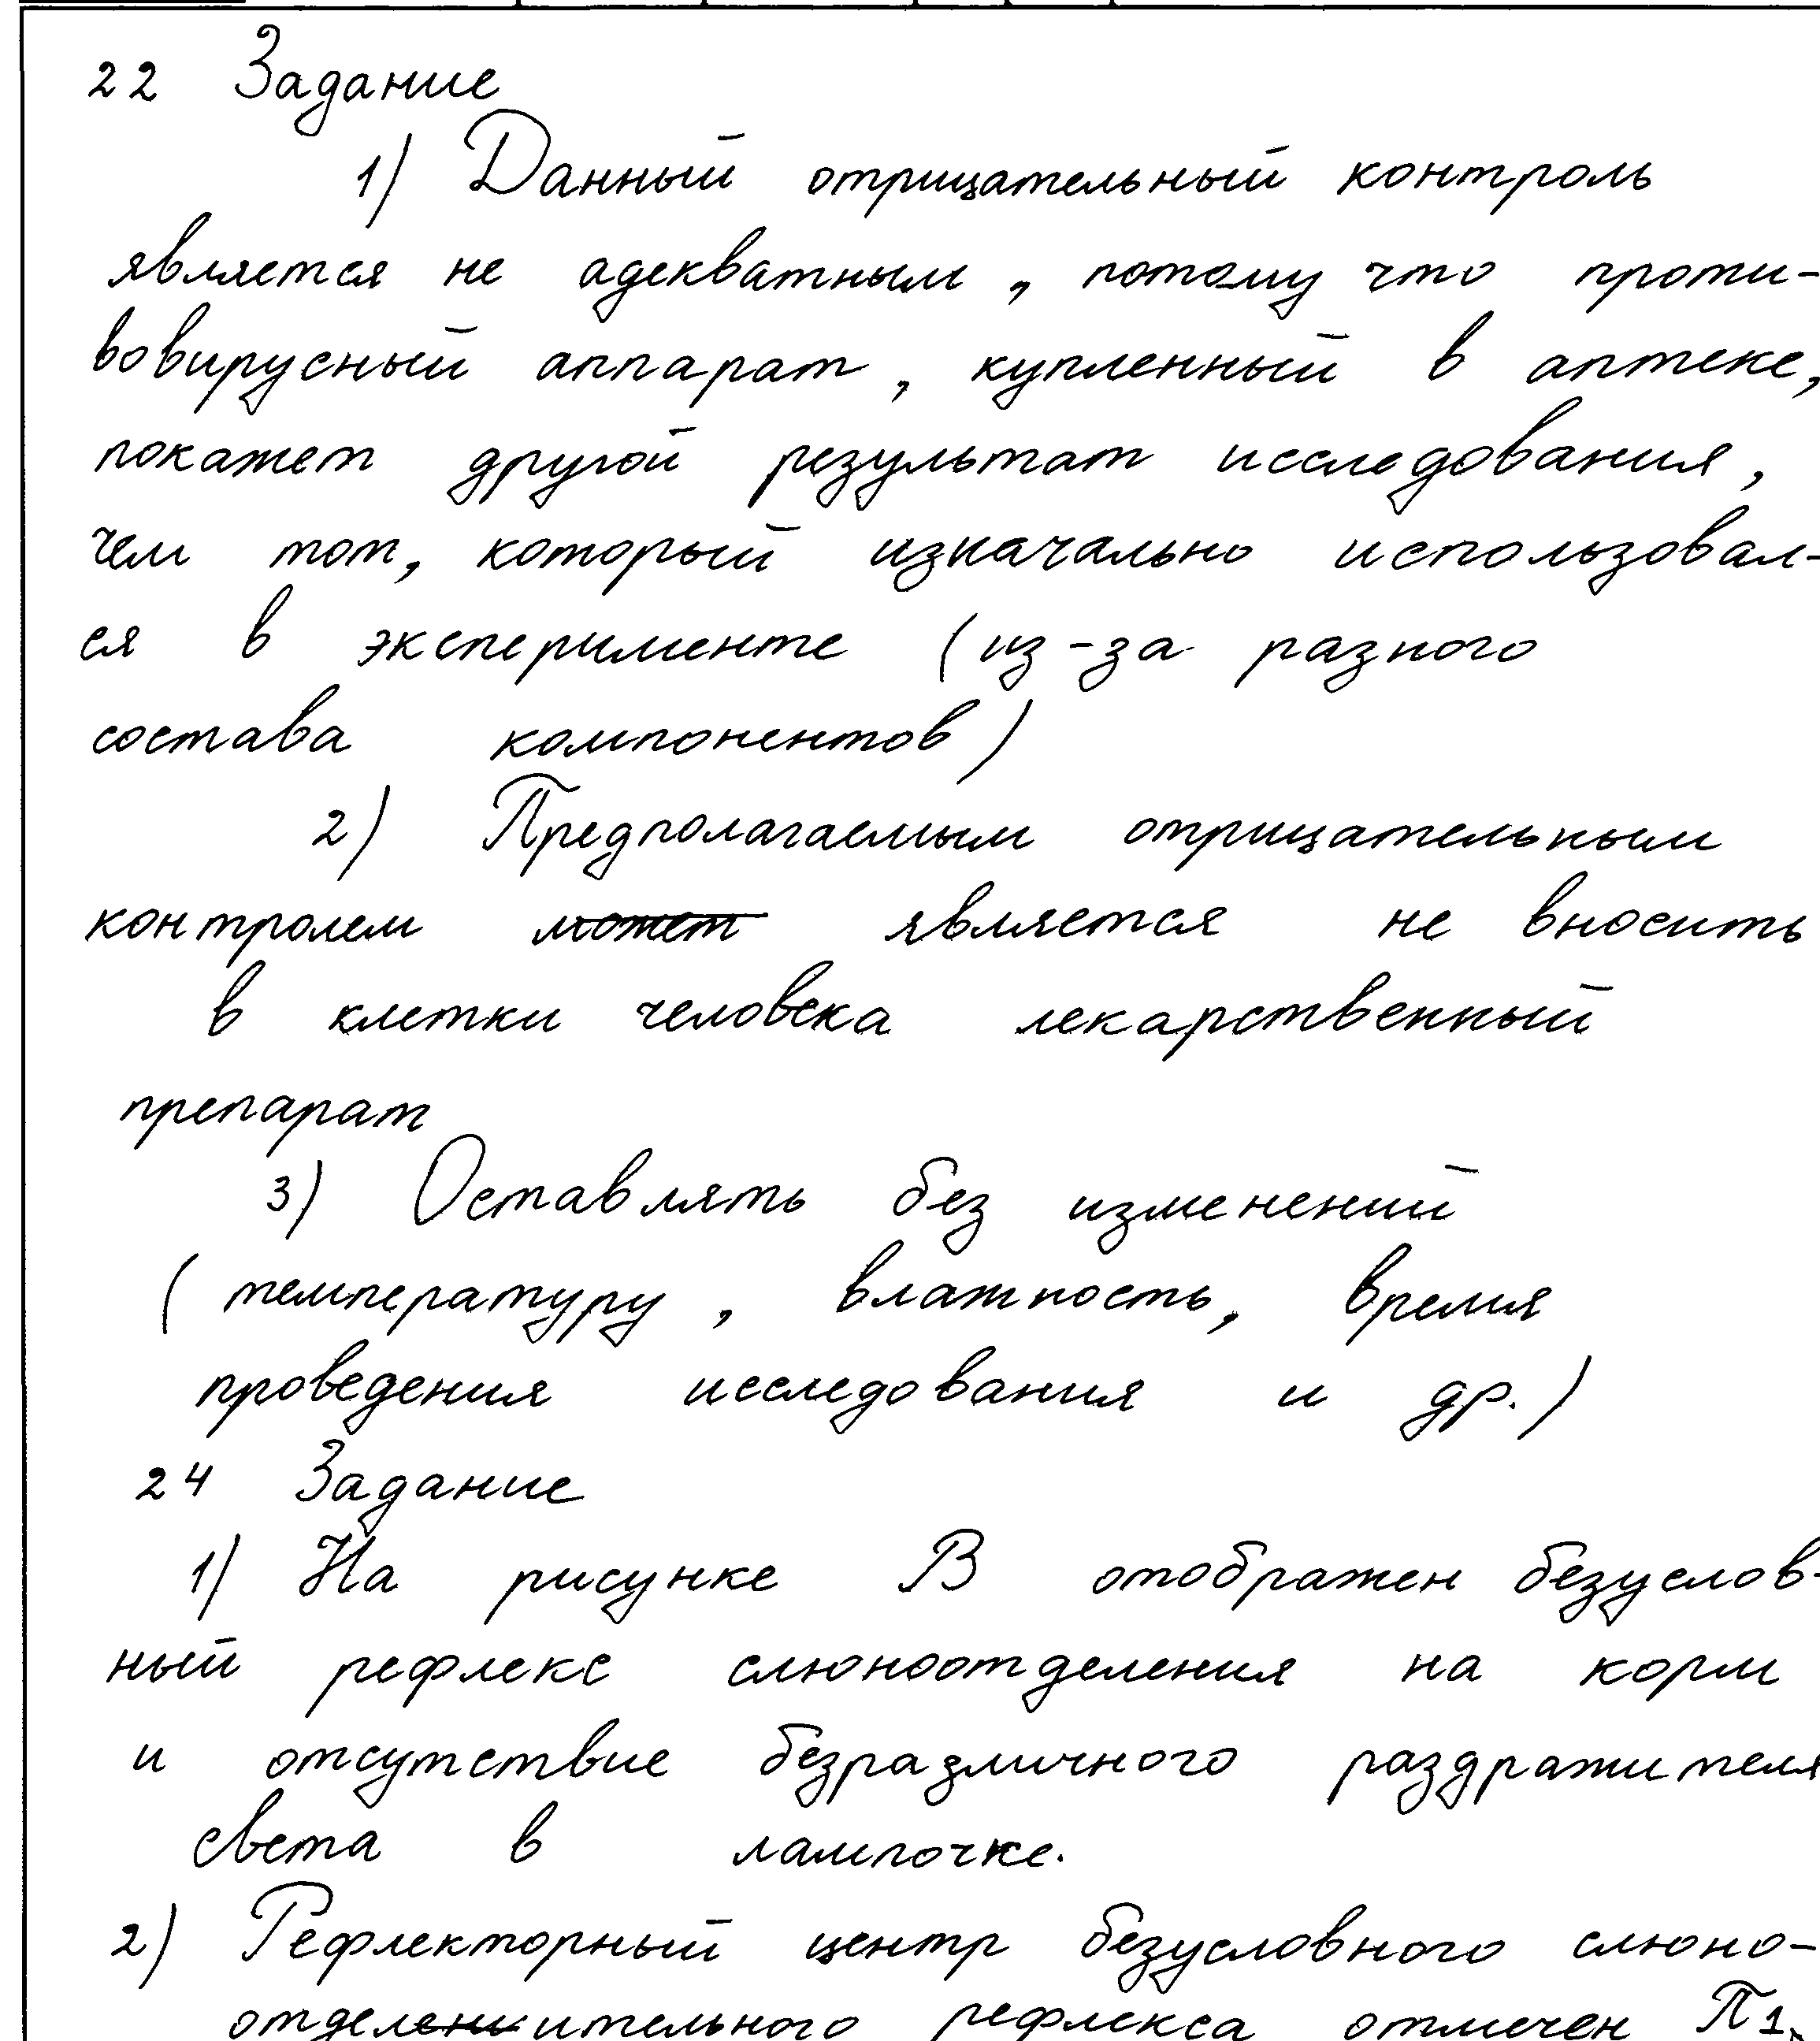 22 Задание
1) Данный отрицательный контроль
является не адекватным, потому что проти-
вовирусный аппарат, купленный в аптеке,
покажет другой результат исследования,
чем тот, который изначально использовал-
ся в эксперименте (из-за разного
состава компонентов)
2) Предполагаемым отрицательным
контролем может является не вносить
в клетки человека лекарственный
препарат
3) Оставлять без изменений
(температуру, влажность, время
проведения исследования и др.)
24 Задание
1) На рисунке В отображен безуслов-
ный рефлекс слюноотделения на корм
и отсутствие безразличного раздражителя
света в лампочке.
2) Рефлекторный центр безусловного слюно-
отделенительного рефлекса отмечен П1,